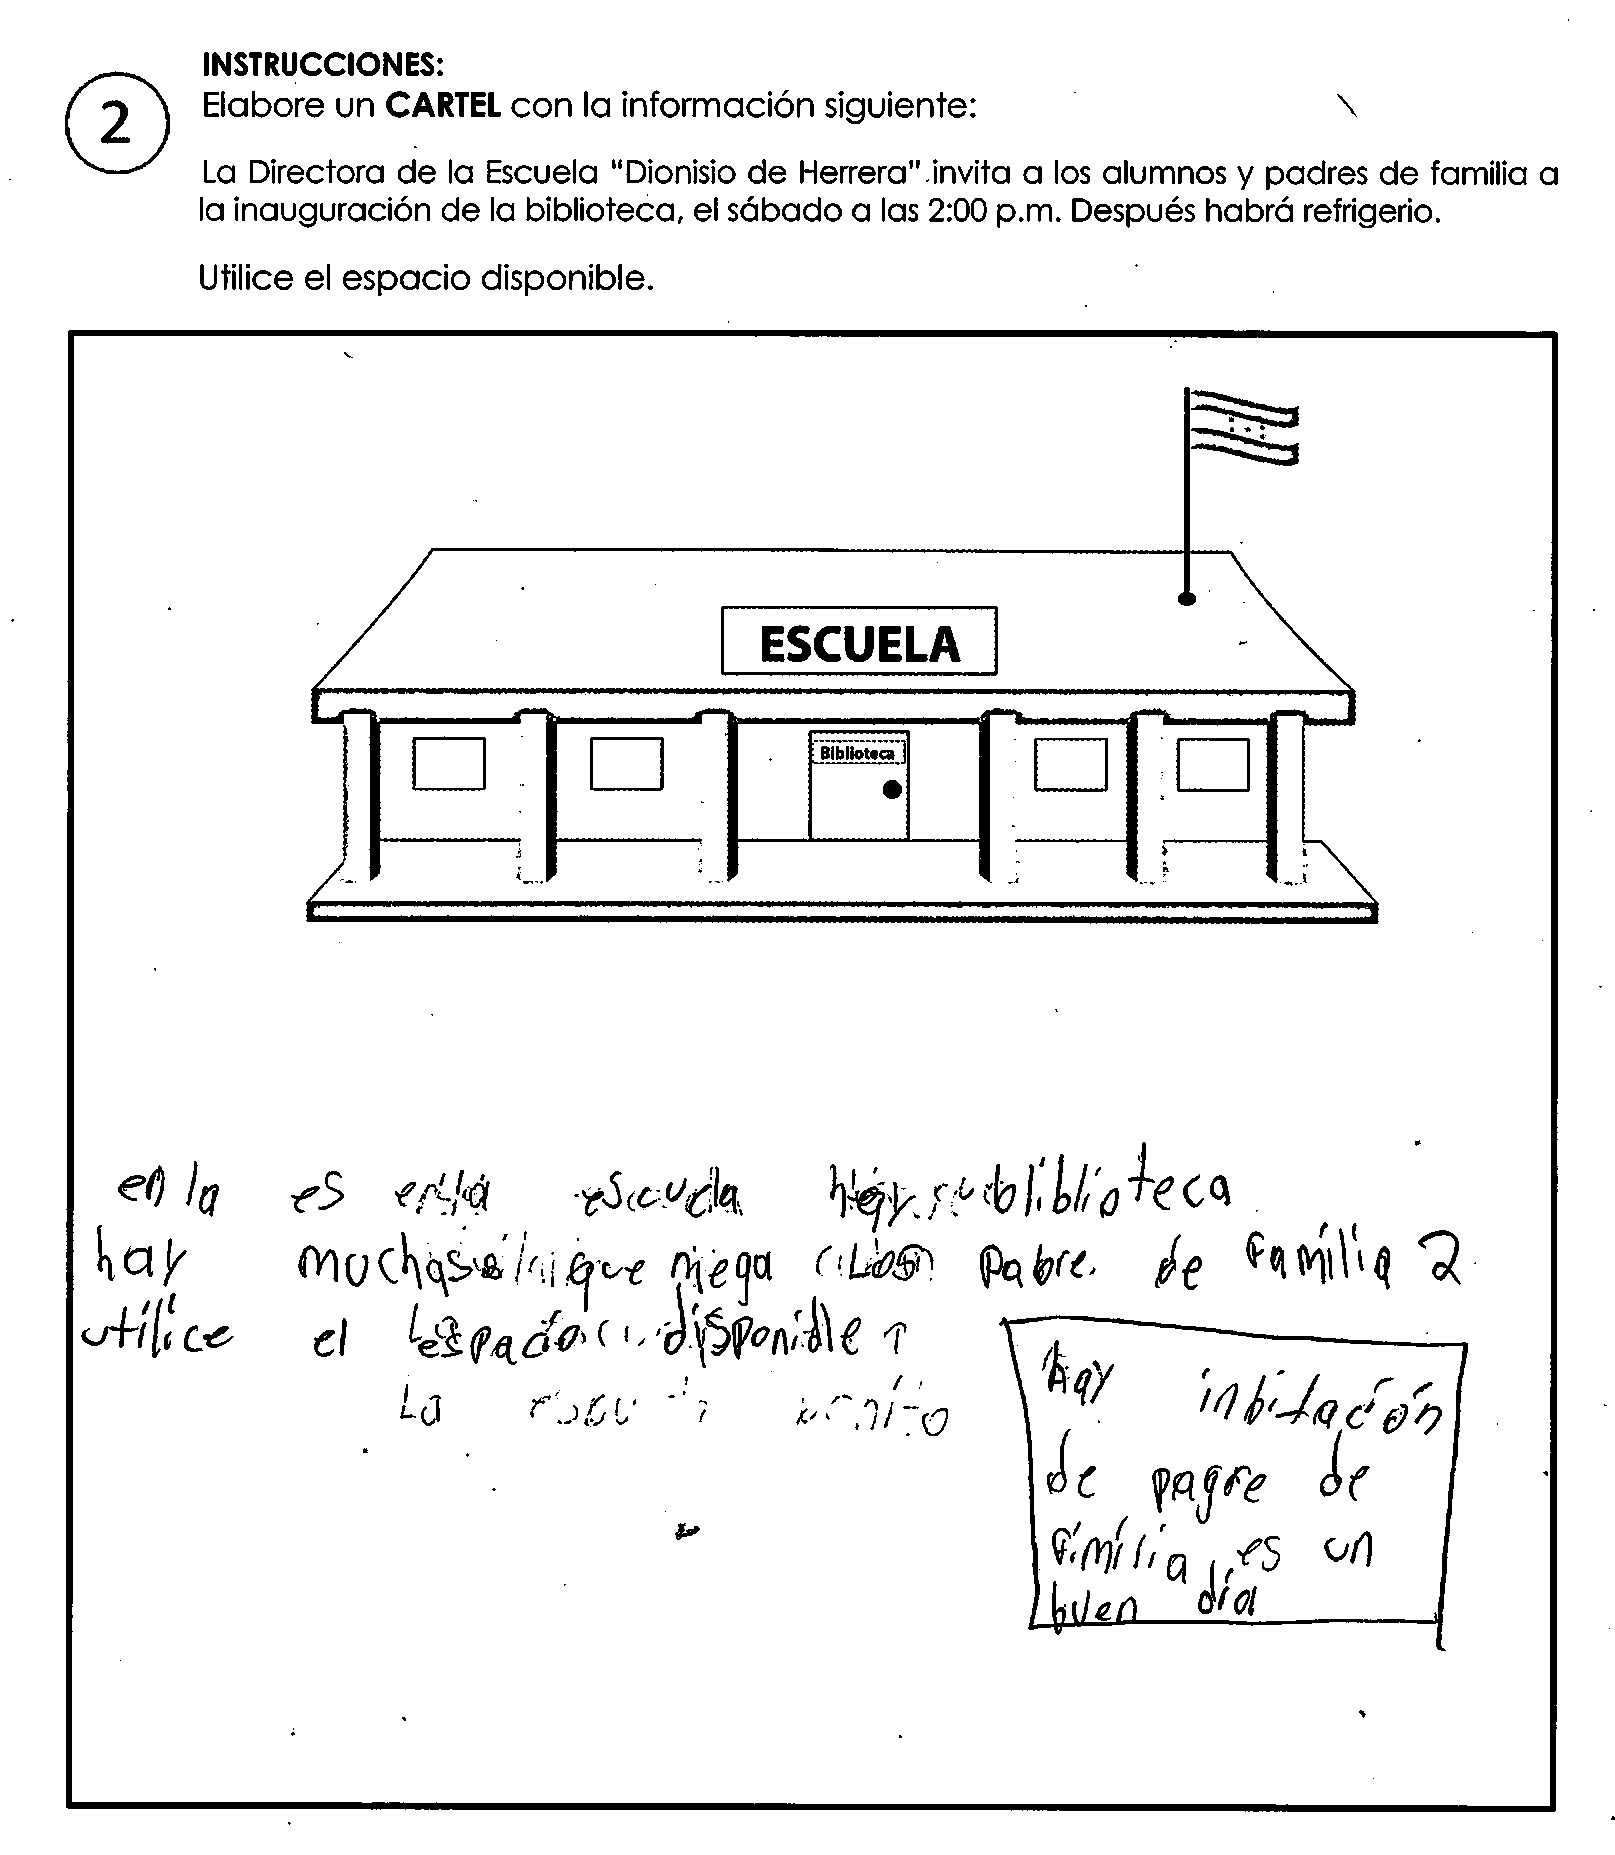 INSTRUCCIONES:
2
Elabore un CARTEL con la información siguiente:
La Directora de la Escuela "Dionisio de Herrera" invita a los alumnos y padres de familia a
la inauguración de la biblioteca, el sábado a las 2:00 p.m. Después habrá refrigerio.
Utilice el espacio disponible.
ESCUELA
Biblioteca
en la es enla escuela hay bliblioteca
hay muchas que niega pabre de familia 2
utilice el espacio disponidle
La
hay inbitación
de pagre de
fimilia es un
buen día